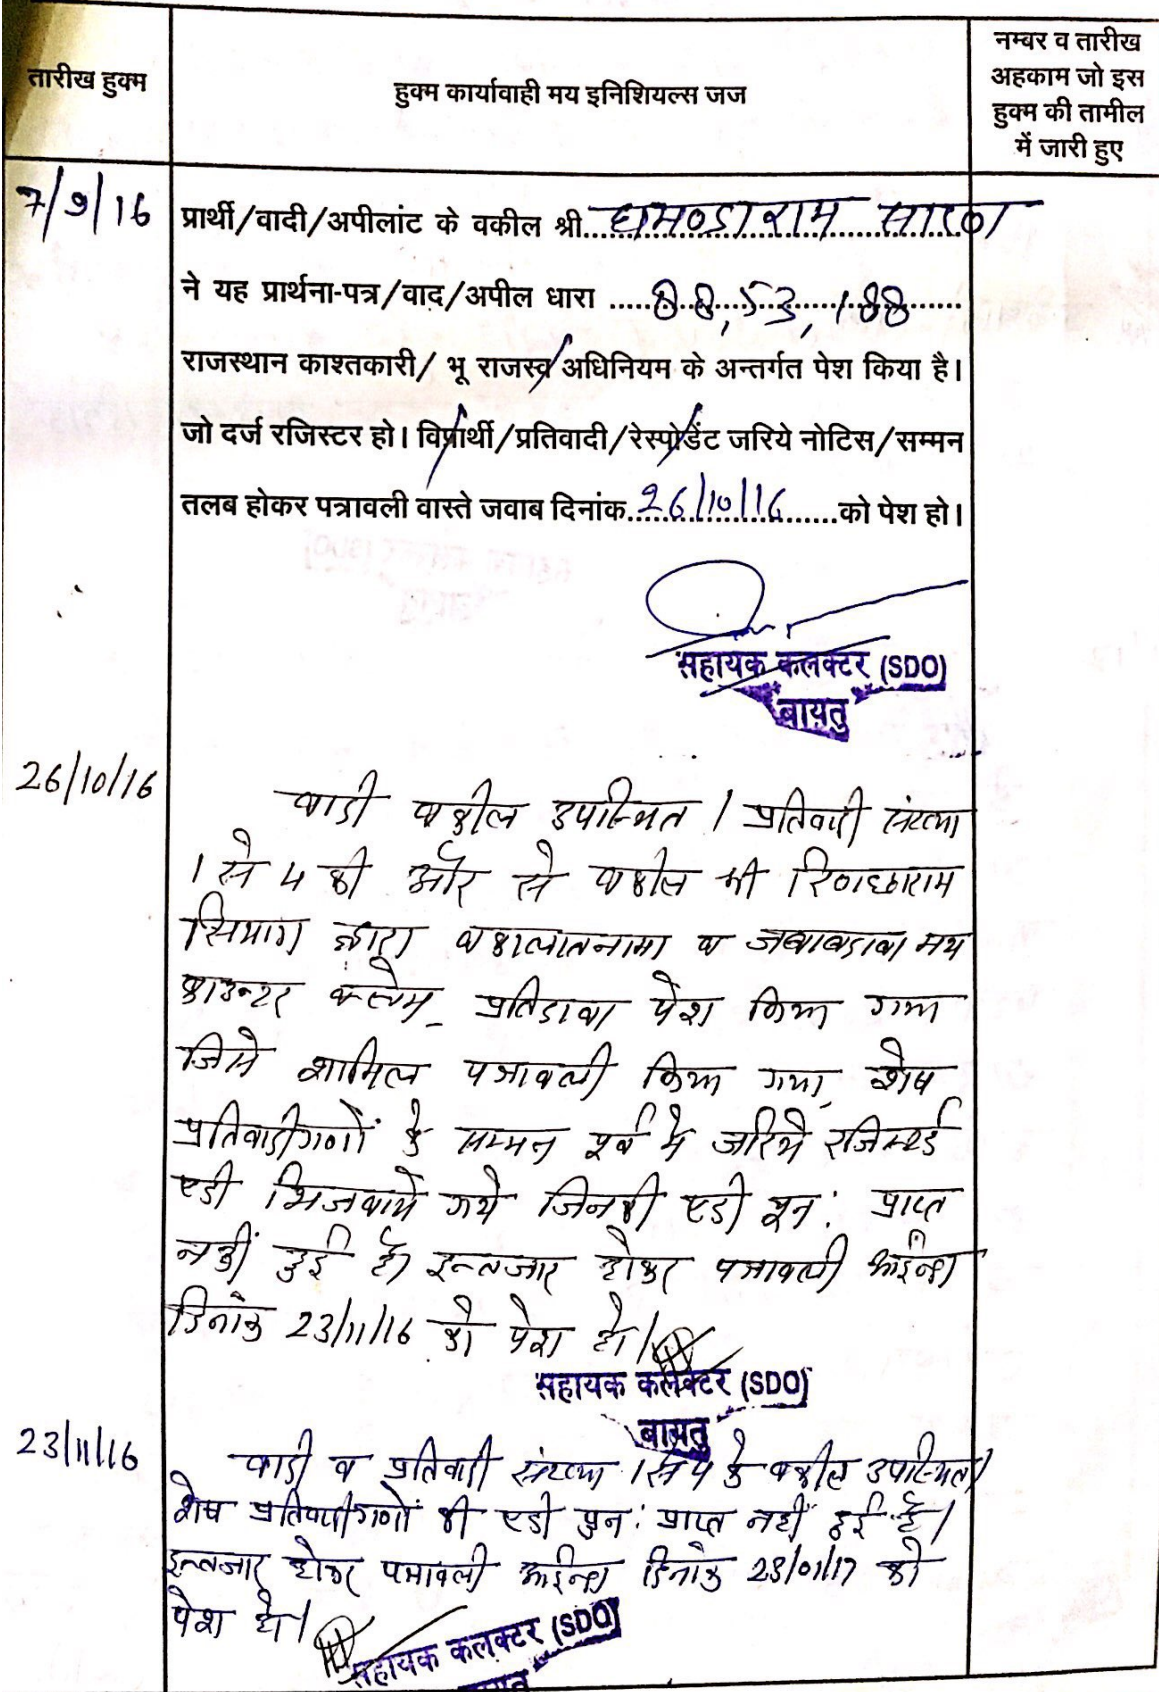 तारीख हुक्म
हुक्म कार्यावाही मय इनिशियल्स जज
नम्बर व तारीख
अहकाम जो इस
हुक्म की तामील
में जारी हुए
7/9/16
प्रार्थी/वादी/अपीलांट के वकील श्री घमण्डाराम सारण
ने यह प्रार्थना-पत्र/वाद/अपील धारा 88,53,188
राजस्थान काश्तकारी/ भू राजस्व/अधिनियम के अन्तर्गत पेश किया है।
जो दर्ज रजिस्टर हो। विप्रार्थी/प्रतिवादी/रेस्पोडेंट जरिये नोटिस/सम्मन
तलब होकर पत्रावली वास्ते जवाब दिनांक 26/10/16 को पेश हो।
सहायक कलक्टर (SDO)
बायतु
26/10/16
वादी वकील उपस्थित। प्रतिवादी संख्या
1 से 4 की ओर से वकील श्री रिणछाराम
सियाग द्वारा वकालातनामा व जवाबदावा मय
काउन्टर क्लेम प्रतिदावा पेश किया गया
जिसे शामिल पत्रावली किया गया, शेष
प्रतिवादीगणों के सम्मन पूर्व मे जरिये रजिस्टर्ड
एडी भिजवाये गये जिनकी एडी पुन: प्राप्त
नहीं हुई है। इन्तजार होकर पत्रावली आईन्दा
दिनांक 23/11/16 को पेश हो।
सहायक कलक्टर (SDO)
बायतु
23/11/16
वादी व प्रतिवादी संख्या 1 से 4 के वकील उपस्थित।
शेष प्रतिवादीगणों की एडी पुन: प्राप्त नहीं हुई है।
इन्तजार होकर पत्रावली आईन्दा दिनांक 23/01/17 को
पेश हो।
सहायक कलक्टर (SDO)
बायतु